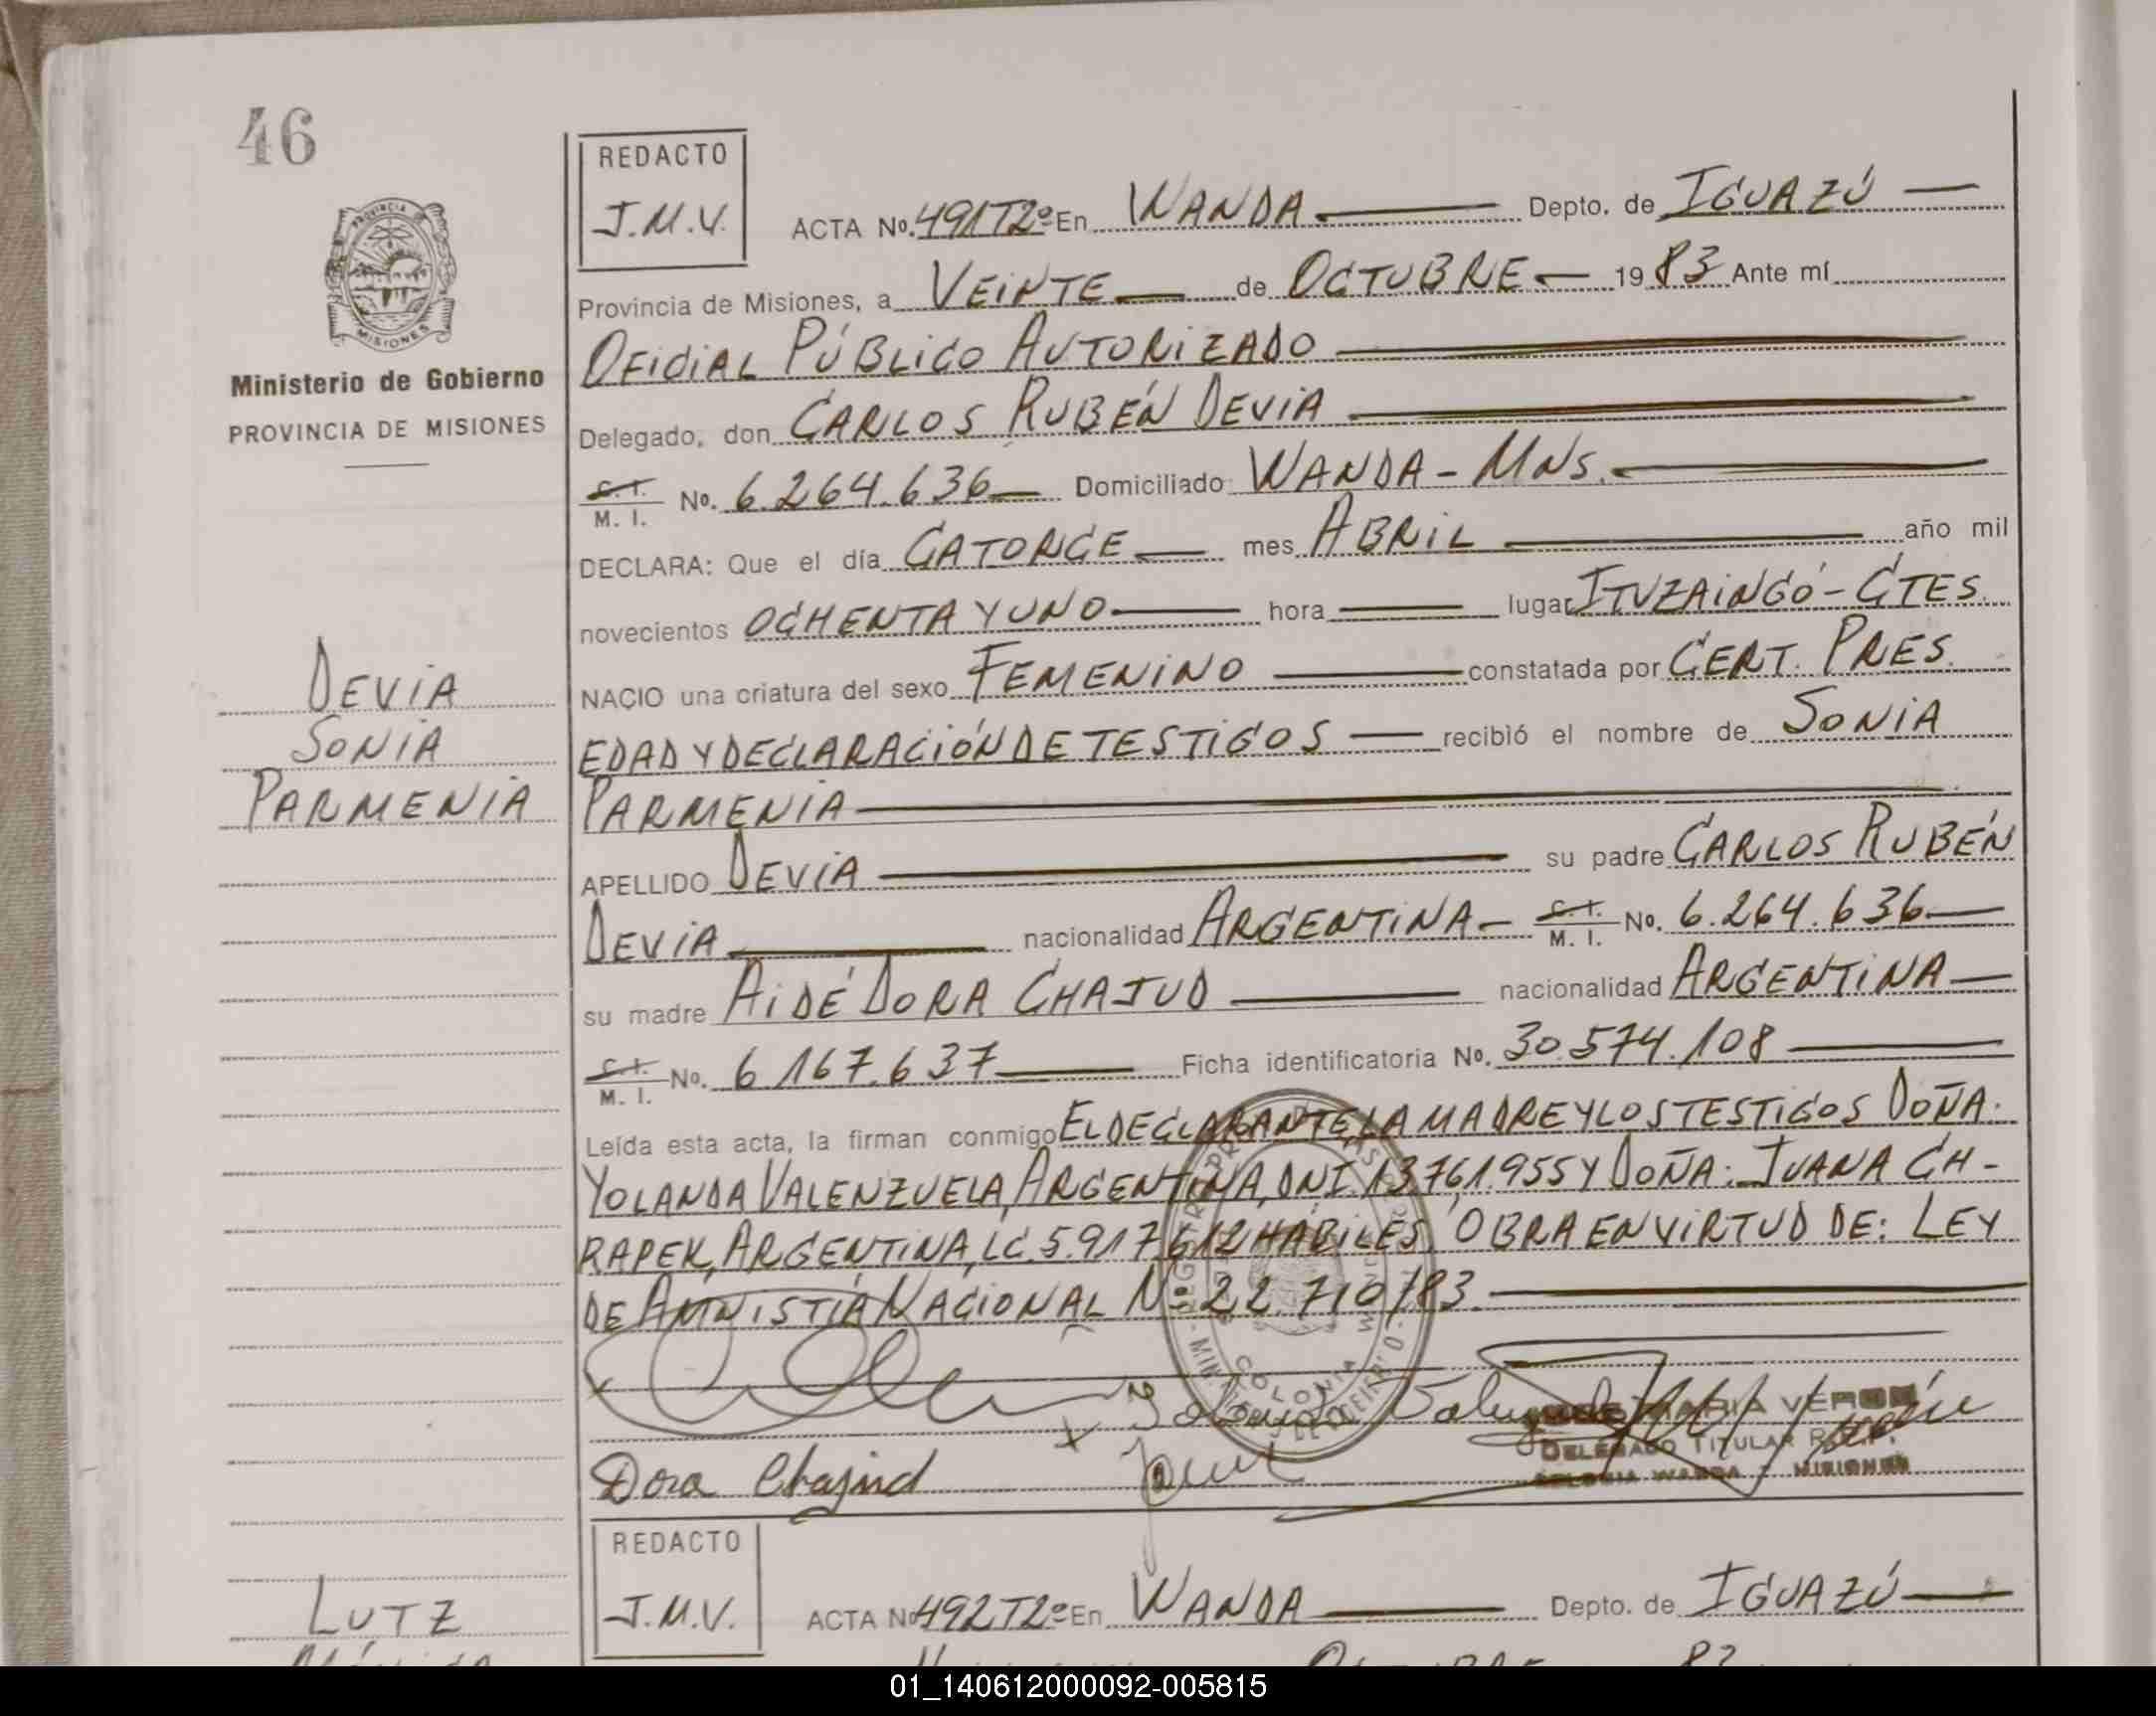 46
PROVINCIA DE
MISIONES
Ministerio de Gobierno
PROVINCIA DE MISIONES
DEVIA
SONIA
PARMENIA
REDACTO
J.M.V.
ACTA No. 491T2º En WANDA Depto. de IGUAZÚ
Provincia de Misiones, a VEINTE de OCTUBRE 1983 Ante mí
OFICIAL PÚBLICO AUTORIZADO
Delegado, don CARLOS RUBÉN DEVIA
C.I. M. I. No. 6.264.636 Domiciliado WANDA - MNS.
DECLARA: Que el día CATORCE mes ABRIL año mil
novecientos OCHENTA Y UNO hora lugar ITUZAINGÓ - CTES.
NACIO una criatura del sexo FEMENINO constatada por CERT. PRES.
EDAD Y DECLARACIÓN DE TESTIGOS recibió el nombre de SONIA
PARMENIA
APELLIDO DEVIA su padre CARLOS RUBÉN
DEVIA nacionalidad ARGENTINA C.I. M. I. No. 6.264.636
su madre AIDÉ DORA CHAJUD nacionalidad ARGENTINA
C.I. M. I. No. 6.167.637 Ficha identificatoria No. 30.574.108
Leída esta acta, la firman conmigo EL DECLARANTE, LA MADRE Y LOS TESTIGOS DOÑA:
YOLANDA VALENZUELA, ARGENTINA, DNI. 13.761.955 Y DOÑA: JUANA CH-
RAPEK, ARGENTINA, LC. 5.917.612 HÁBILES. OBRA EN VIRTUD DE: LEY
DE AMNISTIA NACIONAL Nº 22.710/83.
COLONIA
DELEGADO TITULAR
COLONIA WANDA - MISIONES
Dora Chajud
REDACTO
J.M.V.
ACTA No 492T2º En WANDA Depto. de IGUAZÚ
LUTZ
01_140612000092-005815